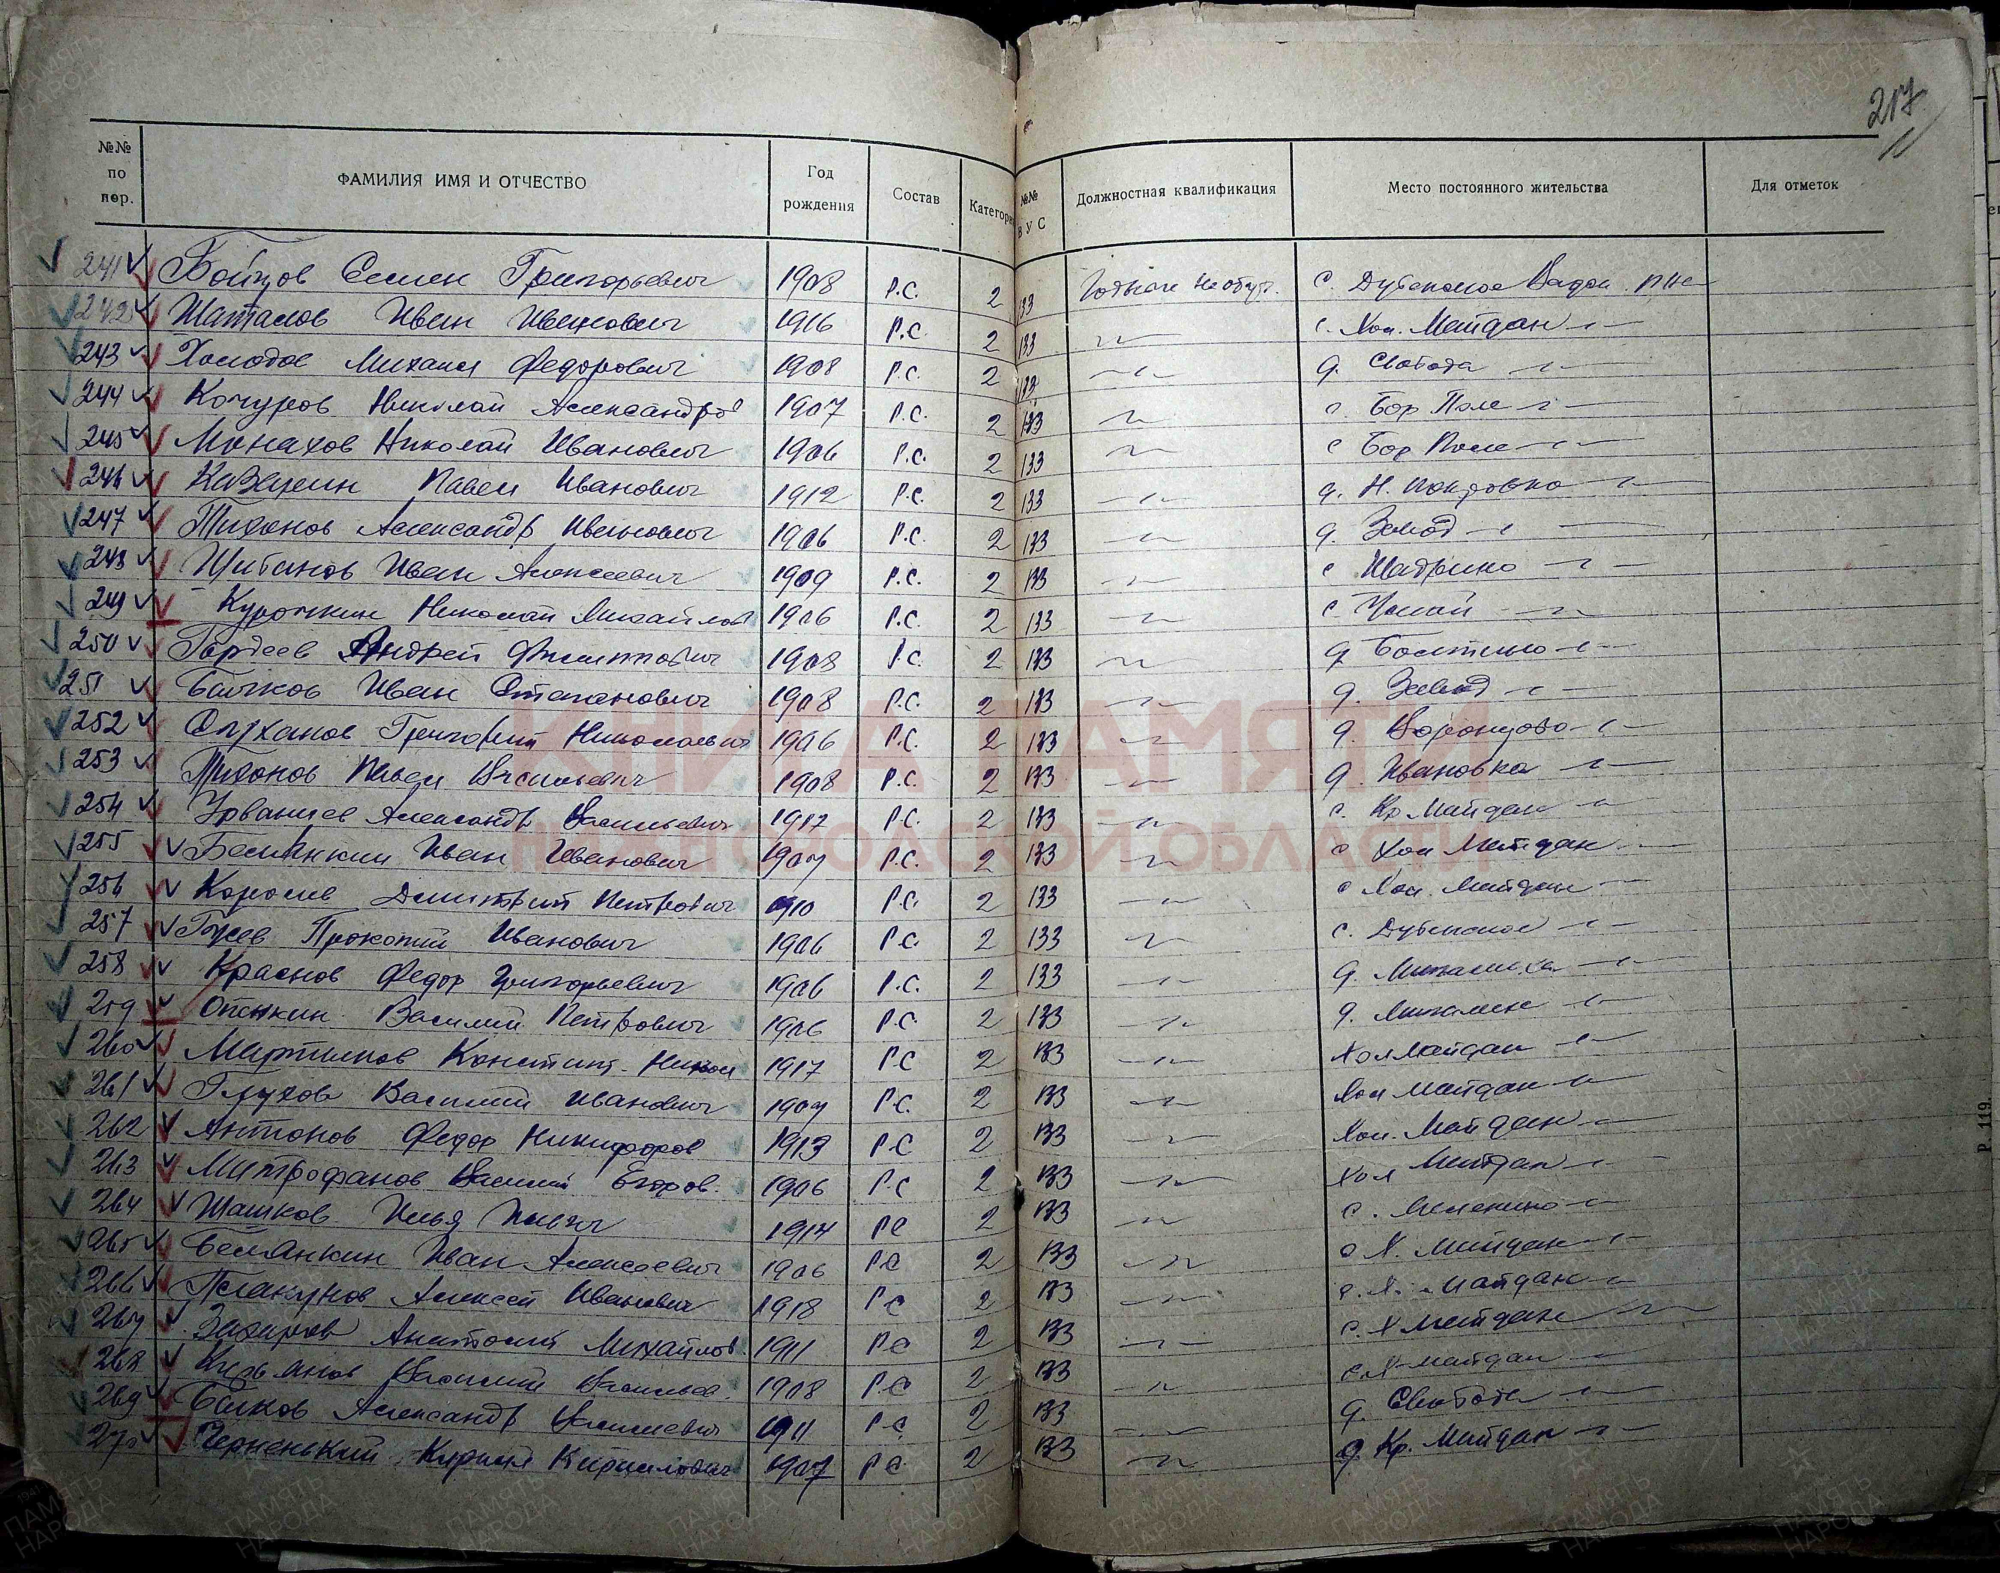 217
№№ по пор. ФАМИЛИЯ ИМЯ И ОТЧЕСТВО Год рождения Состав Категория №№ ВУС Должностная квалификация Место постоянного жительства Для отметок
241 Бойцов Семен Григорьевич 1908 Р.С. 2 133 с. Дубенское
242 Шаталов Иван Иванович 1916 Р.С. 2 133 с. Хол. Майдан
243 Холодов Михаил Федорович 1908 Р.С. 2 133 д. Свобода
244 Кочуров Николай Александров 1907 Р.С. 2 133 с. Бор Поле
245 Монахов Николай Иванович 1906 Р.С. 2 133 с Бор Поле
246 Казарин Павел Иванович 1912 Р.С. 2 133 д. Н. Покровка
247 Тихонов Александр Иванович 1906 Р.С. 2 133 д. Завод
248 Щибанов Иван Алексеевич 1909 Р.С. 2 133 с Шадрино
249 Курочкин Николай Михайлов 1906 Р.С. 2 133 с
250 Гордеев Андрей Филиппович 1908 Р.С. 2 133 д Болтино
251 Бычков Иван Степанович 1908 Р.С. 2 133 д. Завод
252 Григорий Николаевич 1906 Р.С. 2 133 д. Воронцово
253 Тихонов Павел Васильевич 1908 Р.С. 2 133 д. Ивановка
254 Урванцев Александр Васильевич 1917 Р.С. 2 133 с. Кр Майдан
255 Белянкин Иван Иванович 1907 Р.С. 2 133 с Хол Майдан
256 Королев Дмитрий Петрович 1910 Р.С. 2 133 с Хол. Майдан
257 Гусев Прокопий Иванович 1906 Р.С. 2 133 с. Дубенское
258 Краснов Федор Григорьевич 1906 Р.С. 2 133 д.
259 Опенкин Василий Петрович 1906 Р.С. 2 133 д.
260 Мартынов Констант. Никол 1917 РС 2 133 Хол Майдан
261 Глухов Василий Иванович 1907 Р.С. 2 133 Хол Майдан
262 Антонов Федор Никифоров 1913 РС 2 133 Хол. Майдан
263 Митрофанов Василий Егоров. 1906 РС 2 133 Хол Майдан
264 Шашков Илья 1917 РС 2 133 с.
265 Белянкин Иван Алексеевич 1906 РС 2 133 с Х. Майдан
266 Плакунов Алексей Иванович 1918 РС 2 133 с. Х. Майдан
267 Захаров Анатолий Михайлов. 1911 РС 2 133 с. Х Майдан
268 Василий Васильев. 1908 РС 2 133 с Х Майдан
269 Быков Александр Васильевич 1911 РС 2 133 д. Свобода
270 Черненький Кирилл Кириллович 1907 РС 2 133 д. Кр. Майдан
Р 119.
КНИГА ПАМЯТИ
НИЖЕГОРОДСКОЙ ОБЛАСТИ
ПАМЯТЬ НАРОДА